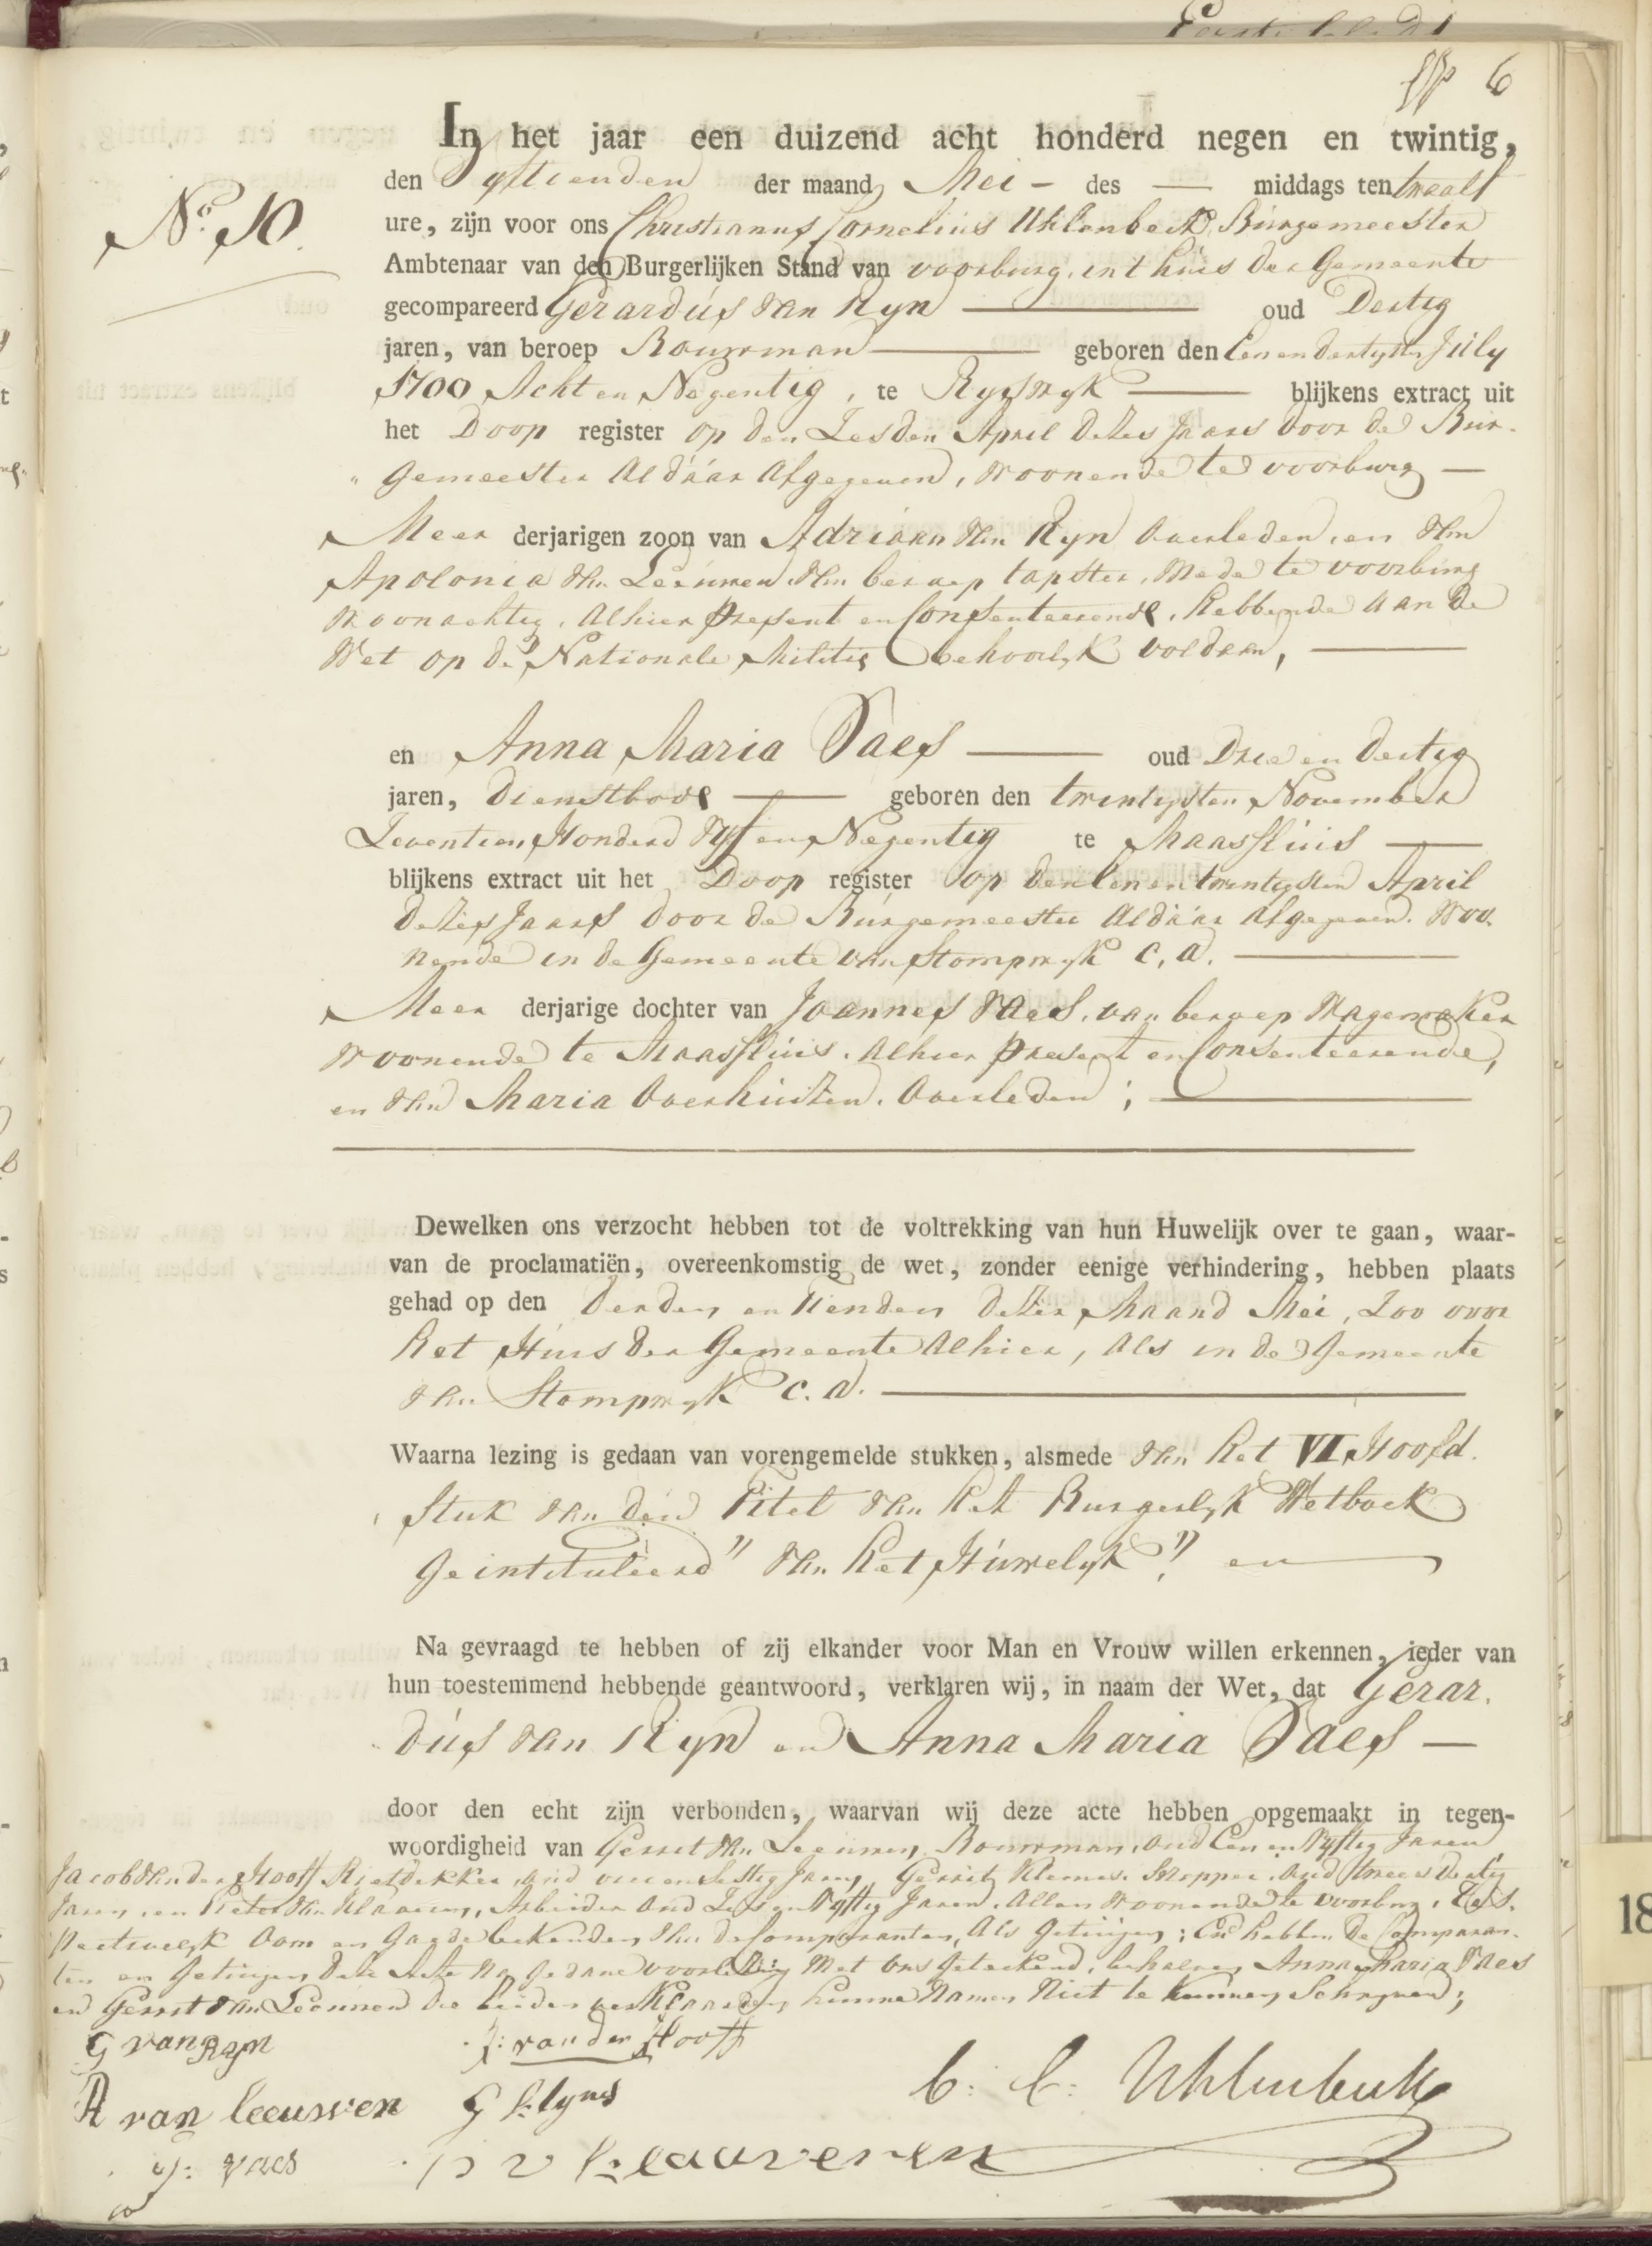 6
In het jaar een duizend acht honderd negen en twintig,
No. 10.
den Vyftienden der maand Mei - des — middags ten twaalf
ure, zijn voor ons Christianus Cornelius Uhlenbeck Burgemeester
Ambtenaar van den Burgerlijken Stand van voorburg, in t huis der Gemeente
gecompareerd Gerardus van Ryn — oud Dertig
jaren, van beroep Bouwman — geboren den Eenendertigsten July
1700 Acht en Negentig, te Ryswyk — blijkens extract uit
het Doop register op den Zesden April dezes Jaars door de Bur-
gemeester Aldaar Afgegeven, woonende te voorburg —
Meer derjarigen zoon van Adriaan van Ryn overleden, en van
Apolonia van Leeuwen van beroep tapster, mede te voorburg
woonachtig, Alhier present en Consenteerende, hebbende aan de
Wet op de Nationale Militie behoorlyk voldaan, —
en Anna Maria Vaes — oud Drie en dertig
jaren, Dienstbode — geboren den twintigsten November
Zeventien Honderd Vyf en Negentig te Maassluis —
blijkens extract uit het Doop register op den Eenentwintigsten April
dezes Jaars door de Burgemeester Aldaar Afgegeven. Woo-
nende in de Gemeente van Stompwyk c.a. —
Meer derjarige dochter van Joannes Vaes, van beroep Wagemaker
woonende te Maassluis. Alhier present en Consenteerende,
en van Maria Overhuizen. Overleden; —
Dewelken ons verzocht hebben tot de voltrekking van hun Huwelijk over te gaan, waar-
van de proclamatiën, overeenkomstig de wet, zonder eenige verhindering, hebben plaats
gehad op den derden en tienden dezer Maand Mei, Zoo voor
het Huis der Gemeente Alhier, Als in de Gemeente
van Stompwyk c.a. —
Waarna lezing is gedaan van vorengemelde stukken, alsmede van het VI Hoofd-
Stuk van den Titel van het Burgerlyk Wetboek
Geintituleerd "van het Huwelyk" en —
Na gevraagd te hebben of zij elkander voor Man en Vrouw willen erkennen, ieder van
hun toestemmend hebbende geantwoord, verklaren wij, in naam der Wet, dat Gerar-
dus van Ryn en Anna Maria Vaes —
door den echt zijn verbonden, waarvan wij deze acte hebben opgemaakt in tegen-
woordigheid van Gerrit van Leeuwen, Bouwman, oud Een en Vyftig Jaren
Jacob van der Hooff Rietdekker, oud vier en Sestig Jaren, Gerrit Klemes. oud twee en dertig
Jaren, en Pieter van Klaveren, Arbeider oud Zes en Vyftig Jaren, Allen woonende te voorburg, Res-
pectivelyk Oom en Goede bekenden van de Comparanten, Als getuigen; En hebben de Comparan-
ten en Getuigen deze Acte na gedane voorlezing met ons geteekend, behalve Anna Maria Vaes
en Gerrit van Leeuwen die beiden verklaarden hunne Namen Niet te kunnen Schryven;
G van Ryn
J: van der Hooff
A van Leeuwen
G Klyns
C: C: Uhlenbeck
J: vaes
P v Klaaveren
18